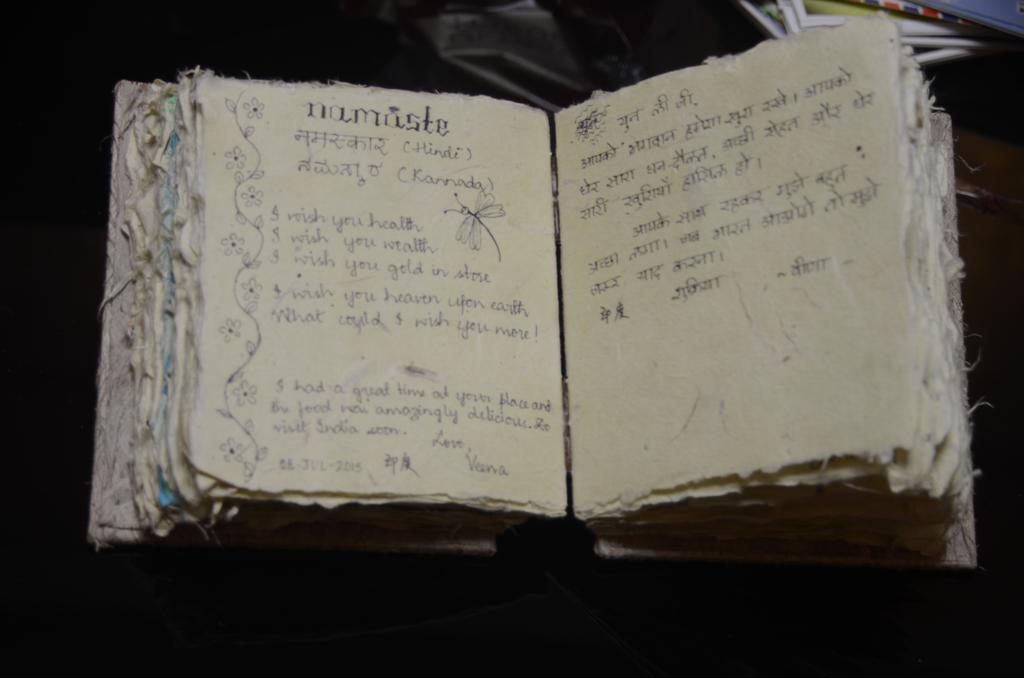 namaste
नमस्कार (Hindi)
(Kannada)
I wish you health
I wish you wealth
I wish you gold in store
I wish you heaven upon earth
What could I wish you more!
I had a great time at your place and
the food was amazingly delicious. Do
visit India soon.
Love,
08-JUL-2015 印度 Veena
युन ली जी,
आपको भगवान हमेशा खुश रखे। आपको
ढेर सारा धन-दौलत, अच्छी सेहत और ढेर
सारी खुशियाँ हासिल हो।
आपके साथ रहकर मुझे बहुत
अच्छा लगा। जब भारत आओगे तो मुझे
जरुर याद करना।
शुक्रिया ~वीणा~
印度